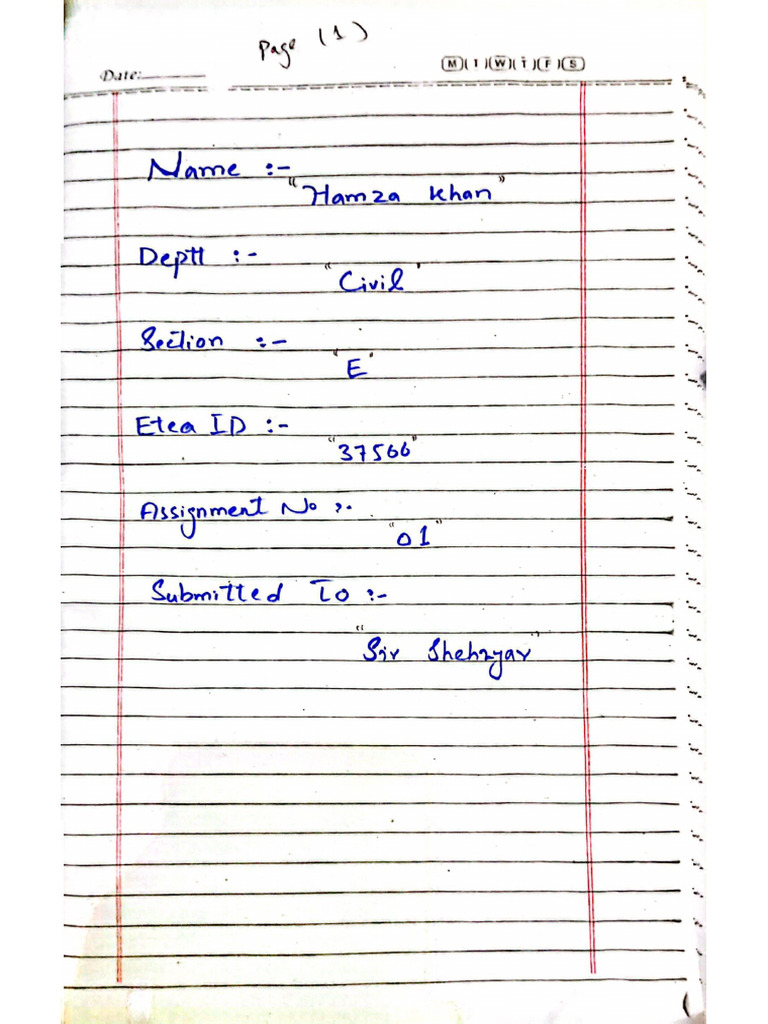 Page (1)
Date:
M T W T F S
Name :-
"Hamza Khan"
Deptt :-
"Civil"
Section :-
"E"
Etea ID :-
"37566"
Assignment No :-
"01"
Submitted To :-
"Sir Shehzyar"